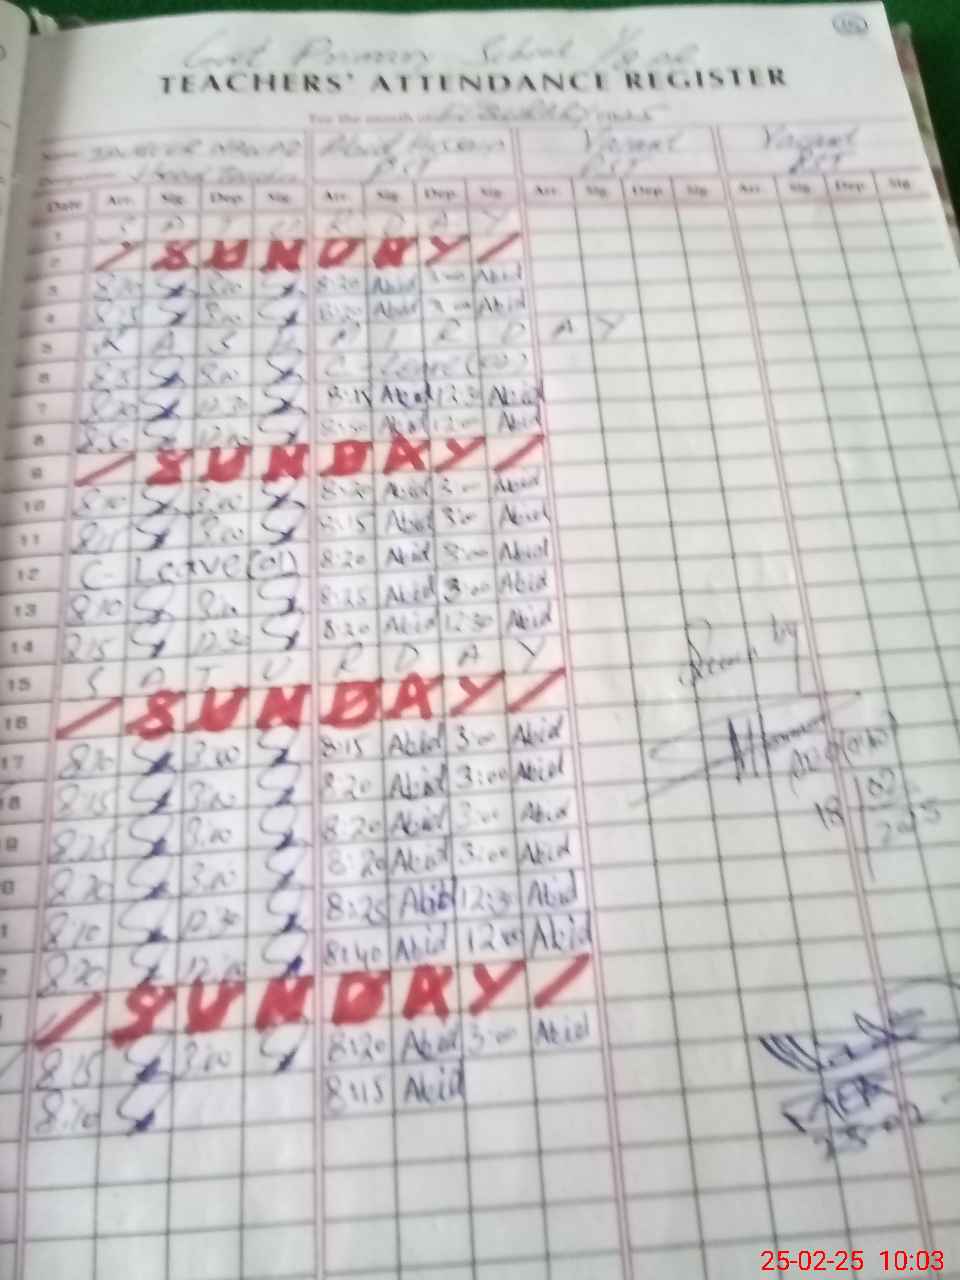 Govt Primary School
TEACHERS' ATTENDANCE REGISTER
For the month of
Abid Hussain Vacant Vacant
PST PST PST
Date Arr. Sig. Dep. Sig. Arr. Sig. Dep. Sig. Arr. Sig. Dep. Sig. Arr. Sig. Dep. Sig.
1 S A T U R D A Y
2 / S U N D A Y /
3 8:20 3:00 8:20 Abid 3:00 Abid
4 8:25 3:00 8:20 Abid 3:00 Abid
5 K A S H M I R D A Y
6 3:00 C- Leave
7 12:30 8:15 Abid 12:30 Abid
8 12:00 8:30 Abid 12:00 Abid
9 / S U N D A Y /
10 8:10 3:00 8:20 Abid 3:00 Abid
11 8:15 3:00 8:15 Abid 3:00 Abid
12 C- Leave (01) 8:20 Abid 3:00 Abid
13 8:10 3:00 8:25 Abid 3:00 Abid
14 8:15 12:30 8:20 Abid 12:30 Abid
15 S A T U R D A Y
Seen by
16 / S U N D A Y /
17 8:20 3:00 8:15 Abid 3:00 Abid
18 8:15 3:00 8:20 Abid 3:00 Abid
18 02 2025
9 8:25 3:00 8:20 Abid 3:00 Abid
0 8:20 3:00 8:20 Abid 3:00 Abid
1 8:10 12:30 8:25 Abid 12:30 Abid
2 8:20 12:00 8:40 Abid 12:00 Abid
/ S U N D A Y /
8:15 3:00 8:20 Abid 3:00 Abid
8:10 8:15 Abid
AEO
25-02
25-02-25 10:03